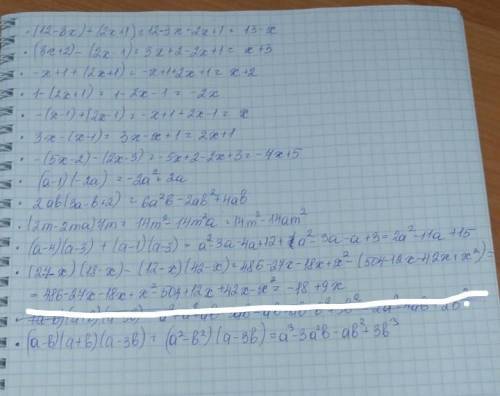 · (12-3x)+(2x+1)=12-3x-2x+1=13-x
· (3x+2)-(2x-1)=3x+2-2x+1=x+3
· -x+1+(2x+1)=-x+1+2x+1=x+2
· 1-(2x+1)=1-2x-1=-2x
· -(x-1)+(2x-1)=-x+1+2x-1=x
· 3x-(x-1)=3x-x+1=2x+1
· -(5x-2)-(2x-3)=-5x+2-2x+3=-7x+5
· (a-1)(-2a)=-2a²+2a
· 2ab(3a-b+2)=6a²b-2ab²+4ab
· (2m-2ma)7m=14m²-14m²a=14m²-14am²
· (a-4)(a-3)+(a-1)(a-3)=a²-3a-4a+12+a²-3a-a+3=2a²-11a+15
· (27-x)(18-x)-(12-x)(42-x)=486-27x-18x+x²-(504-12x-42x+x²)=
=486-27x-18x+x²-504+12x+42x-x²=-18+9x
· (a-b)(a+b)(a-3b)=(a²-b²)(a-3b)=a³-3a²b-ab²+3b³